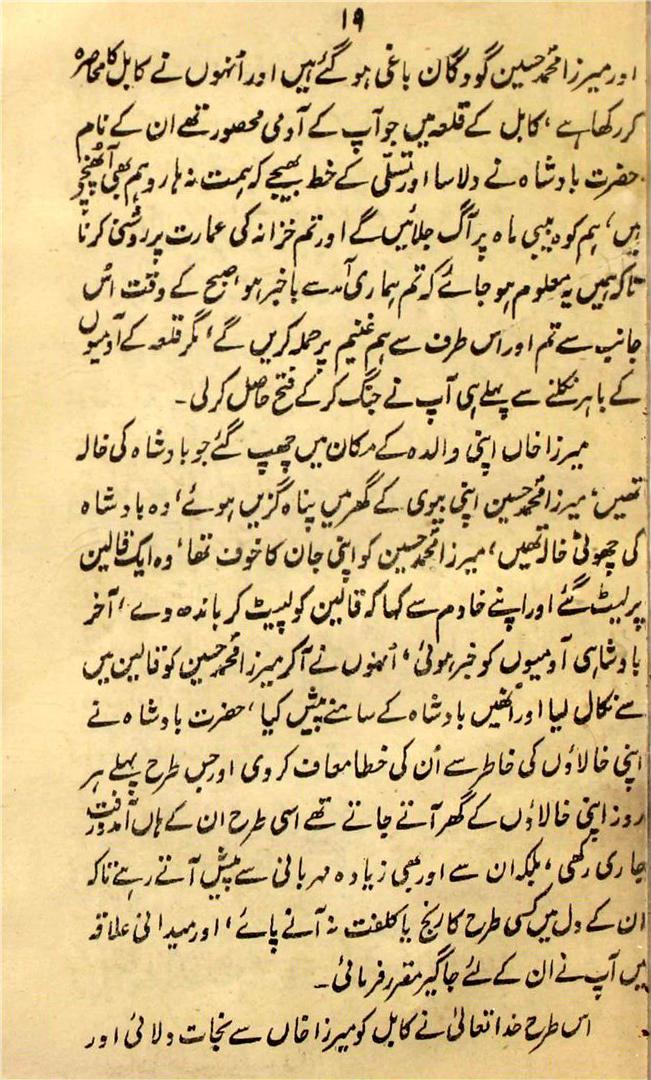 ۱۹
اور میرزا محمد حسین گودگان باغی ہو گئے ہیں اور اُنہوں نے کابل کا محاصرہ
کر رکھا ہے، کابل کے قلعہ میں جو آپ کے آدمی محصور تھے ان کے نام
حضرت بادشاہ نے دلاسا اور تسلّی کے خط بھیجے کہ ہمت نہ ہارو ہم بھی آ پہنچے
ہیں، ہم کوہ بیبی ماہ پر آگ جلائیں گے اور تم خزانہ کی عمارت پر روشنی کرنا
تاکہ ہمیں یہ معلوم ہو جائے کہ تم ہماری آمد سے باخبر ہو، صبح کے وقت اُس
جانب سے تم اور اس طرف سے ہم غنیم پر حملہ کریں گے، مگر قلعہ کے آدمیوں
کے باہر نکلنے سے پہلے ہی آپ نے جنگ کر کے فتح حاصل کر لی۔
میرزا خاں اپنی والدہ کے مکان میں چھپ گئے جو بادشاہ کی خالہ
تھیں، میرزا محمد حسین اپنی بیوی کے گھر میں پناہ گزیں ہوئے، وہ بادشاہ
کی چھوٹی خالہ تھیں، میرزا محمد حسین کو اپنی جان کا خوف تھا، وہ ایک قالین
پر لیٹ گئے اور اپنے خادم سے کہا کہ قالین کو لپیٹ کر باندھ دے، آخر
بادشاہی آدمیوں کو خبر ہوئی، اُنہوں نے آ کر میرزا محمد حسین کو قالین میں
سے نکال لیا اور اُنھیں بادشاہ کے سامنے پیش کیا، حضرت بادشاہ نے
اپنی خالاؤں کی خاطر سے اُن کی خطا معاف کر دی اور جس طرح پہلے ہر
روز اپنی خالاؤں کے گھر آتے جاتے تھے اسی طرح ان کے ہاں آمدورفت
جاری رکھی، بلکہ ان سے اور بھی زیادہ مہربانی سے پیش آتے رہے تاکہ
ان کے دل میں کسی طرح کا رنج یا کلفت نہ آنے پائے، اور میدانی علاقہ
میں آپ نے ان کے لئے جاگیر مقرر فرمائی۔
اس طرح خدا تعالیٰ نے کابل کو میرزا خاں سے نجات دلائی اور